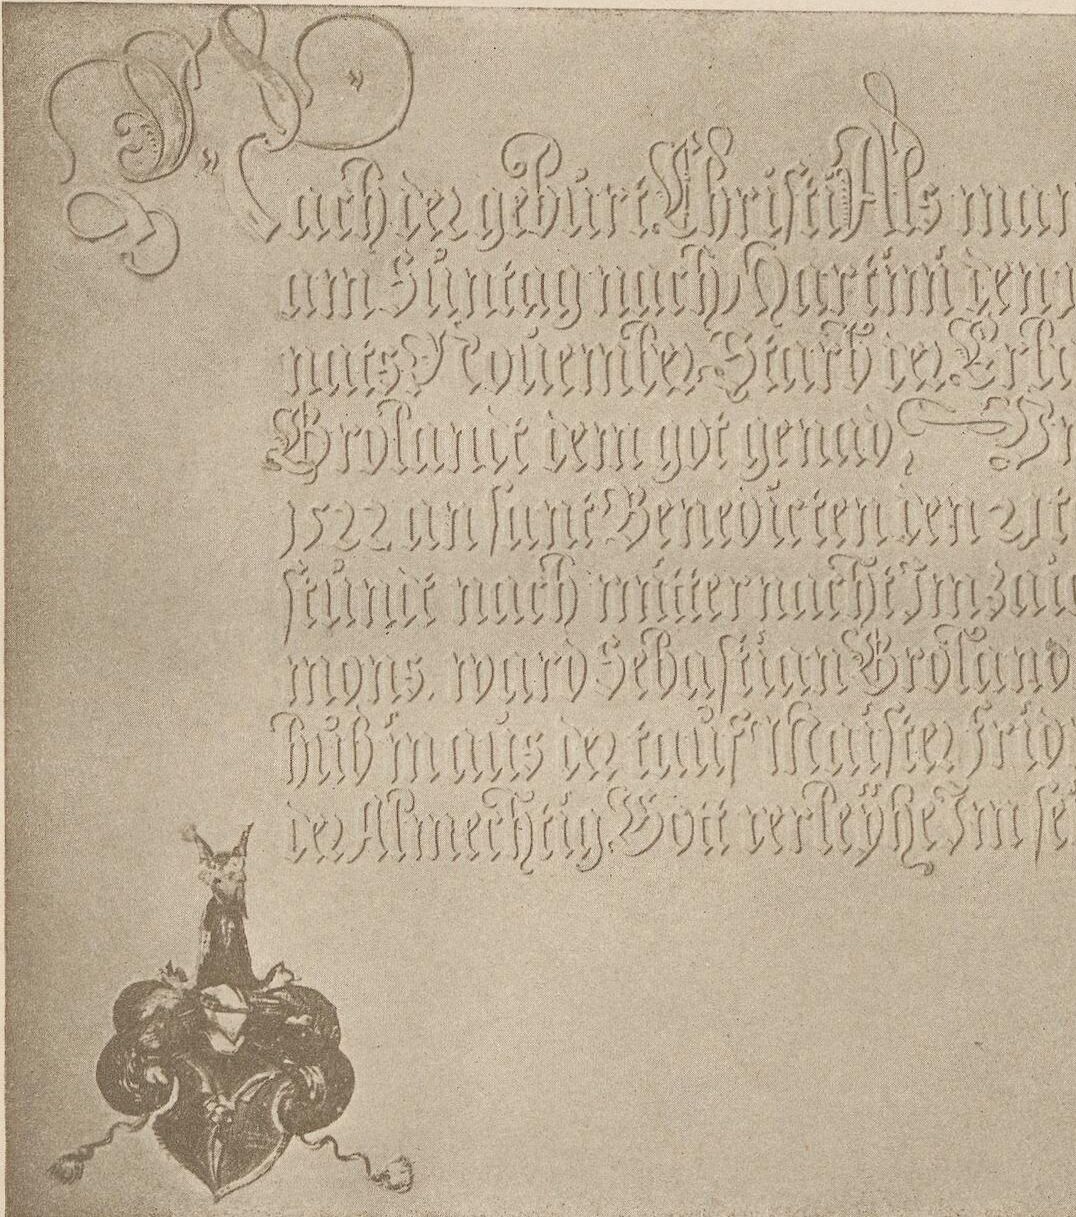 Nach der gebürt Christi Als man
am Süntag nach Martini den
nats Nouember Starb der Erb
Grolandt dem got genad
1522 an sant Benedicten den 21t
stündt nach mitternacht Im zaic
mons. ward Sebastian Groland
hüb in aus der tauf Maister frid
der Almechtig Gott verleyhe Im se